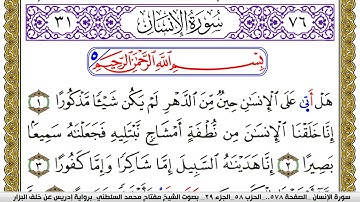 ٧٦ سورة الإنسان ٣١
بِسْمِ اللَّهِ الرَّحْمَٰنِ الرَّحِيمِ
هَلْ أَتَىٰ عَلَى الْإِنسَٰنِ حِينٌ مِّنَ الدَّهْرِ لَمْ يَكُن شَيْـًٔا مَّذْكُورًا ١
إِنَّا خَلَقْنَا الْإِنسَٰنَ مِن نُّطْفَةٍ أَمْشَاجٍ نَّبْتَلِيهِ فَجَعَلْنَٰهُ سَمِيعًۢا
بَصِيرًا ٢ إِنَّا هَدَيْنَٰهُ السَّبِيلَ إِمَّا شَاكِرًا وَإِمَّا كَفُورًا ٣
سورة الإنسان الصفحة ٥٧٨... الحزب ٥٨ الجزء ٢٩ بصوت الشيخ مفتاح محمد السلطني برواية إدريس عن خلف البزار